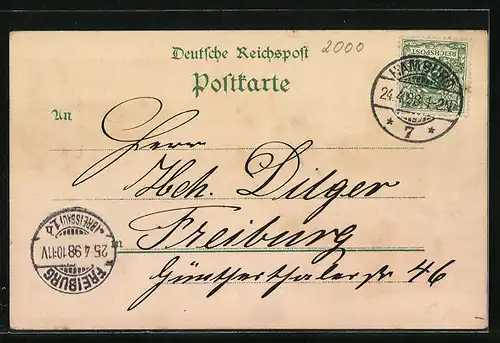 2000
Deutsche Reichspost
Postkarte
REICHSPOST
HAMBURG
24.4.98 1-2N
* 7 *
An
Herr
Hch. Dilger
in Freiburg
Güntherthalerstr 46
(BREISGAU) 1a
25.4.98 10-11V
* FREIBURG *